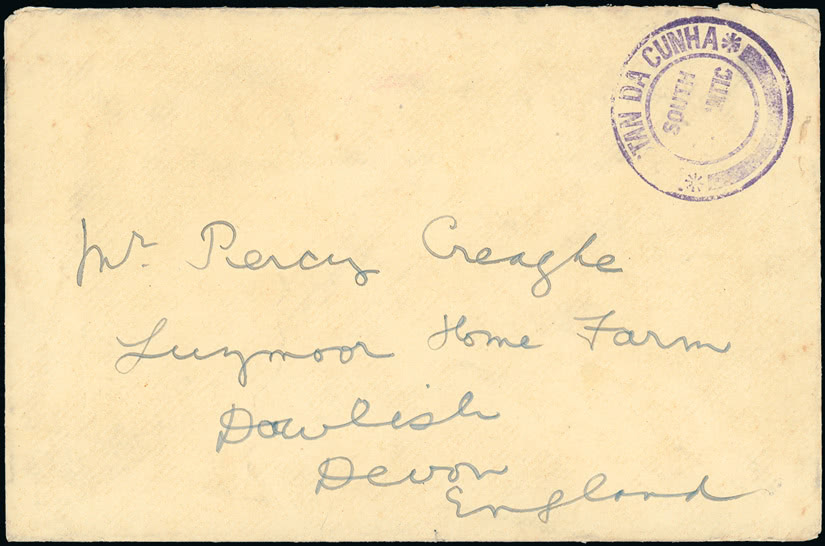 TAN DA CUNHA
SOUTH
NTIC
Mr. Percy Creaghe
Luzmoor Home Farm
Dawlish
Devon
England